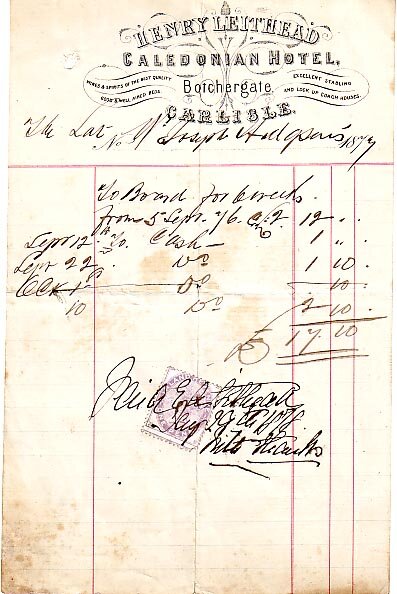 HENRY LEITHEAD
CALEDONIAN HOTEL,
WINES & SPIRITS OF THE BEST QUALITY
GOOD & WELL AIRED BEDS
Botchergate
EXCELLENT STABLING
AND LOCK UP COACH HOUSES.
CARLISLE.
The Lat Mr Joseph Hodgson 1877
To Board for 6 weeks.
from 5 Sept. 12 " "
Sept 12 To. Cash 1 " .
Sept 22 . Do 1 10 .
Oct 1 Do 10 .
10 Do 2 10 .
£ 17. 10
Paid
1878
With Thanks